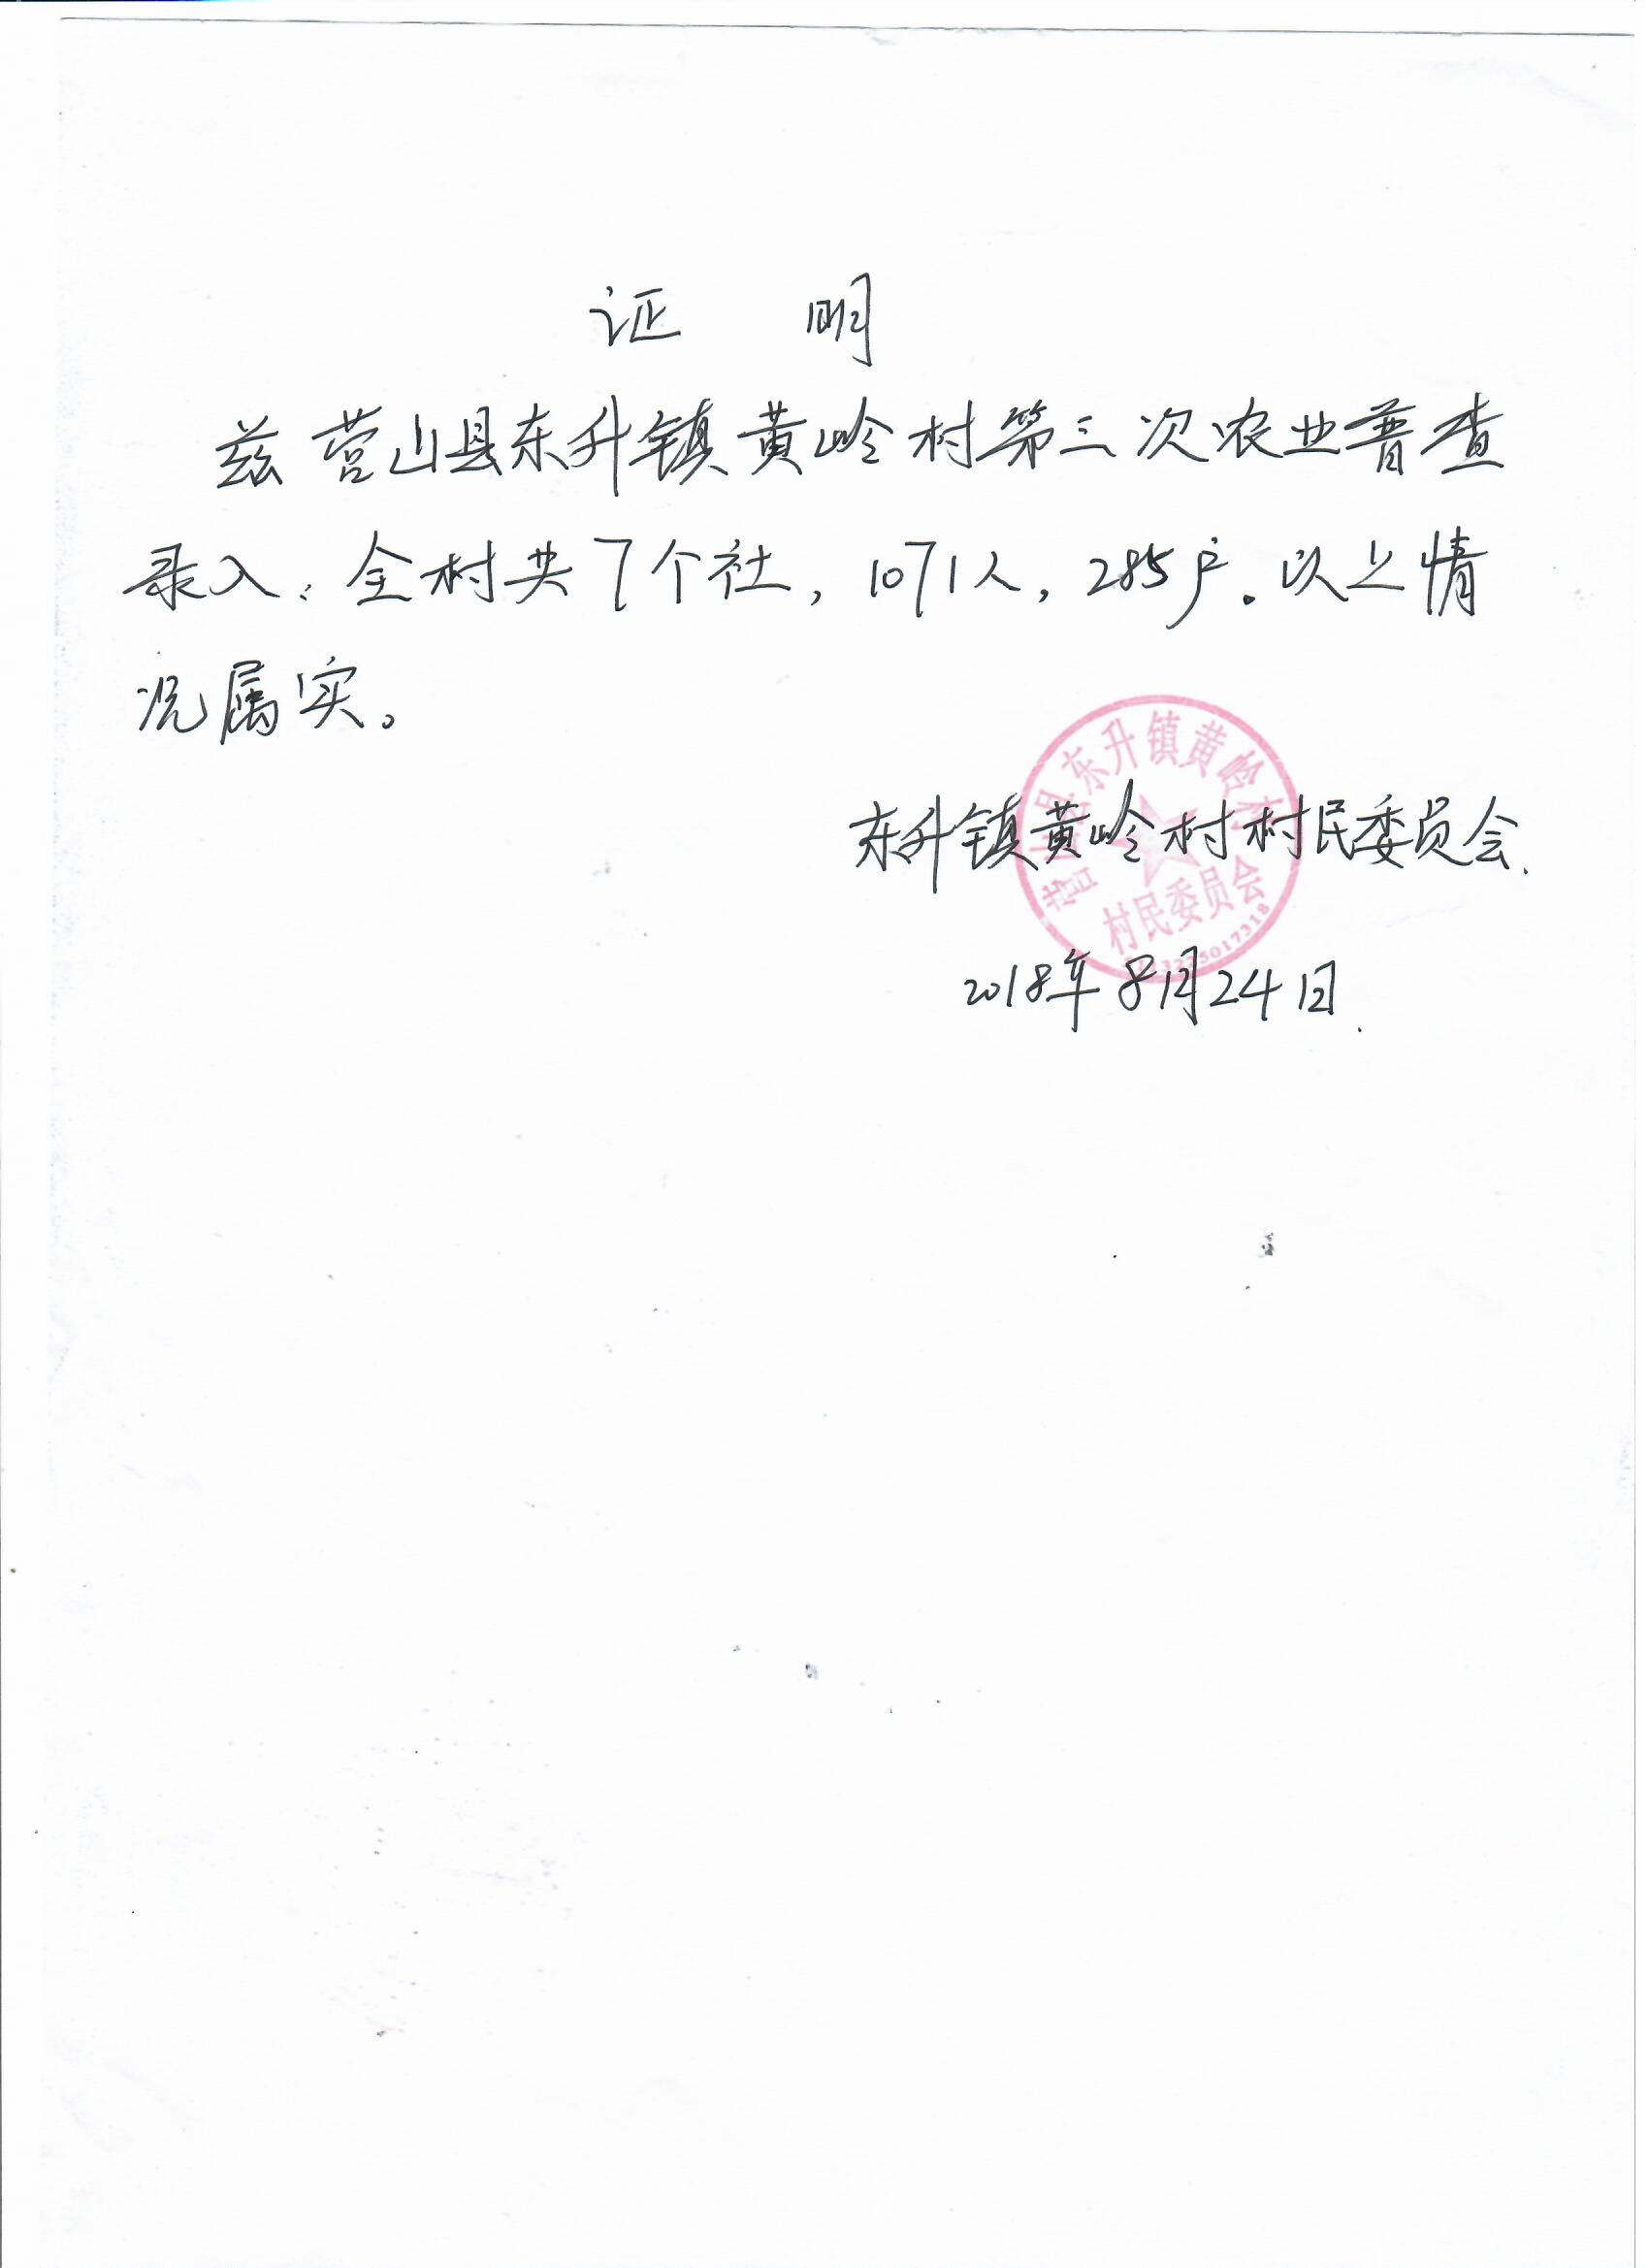 证 明
兹营山县东升镇黄岭村第三次农业普查
录入:全村共7个社,1071人,285户。以上情
况属实。
营山县东升镇黄岭村
东升镇黄岭村村民委员会.
村民委员会
2018年8月24日.